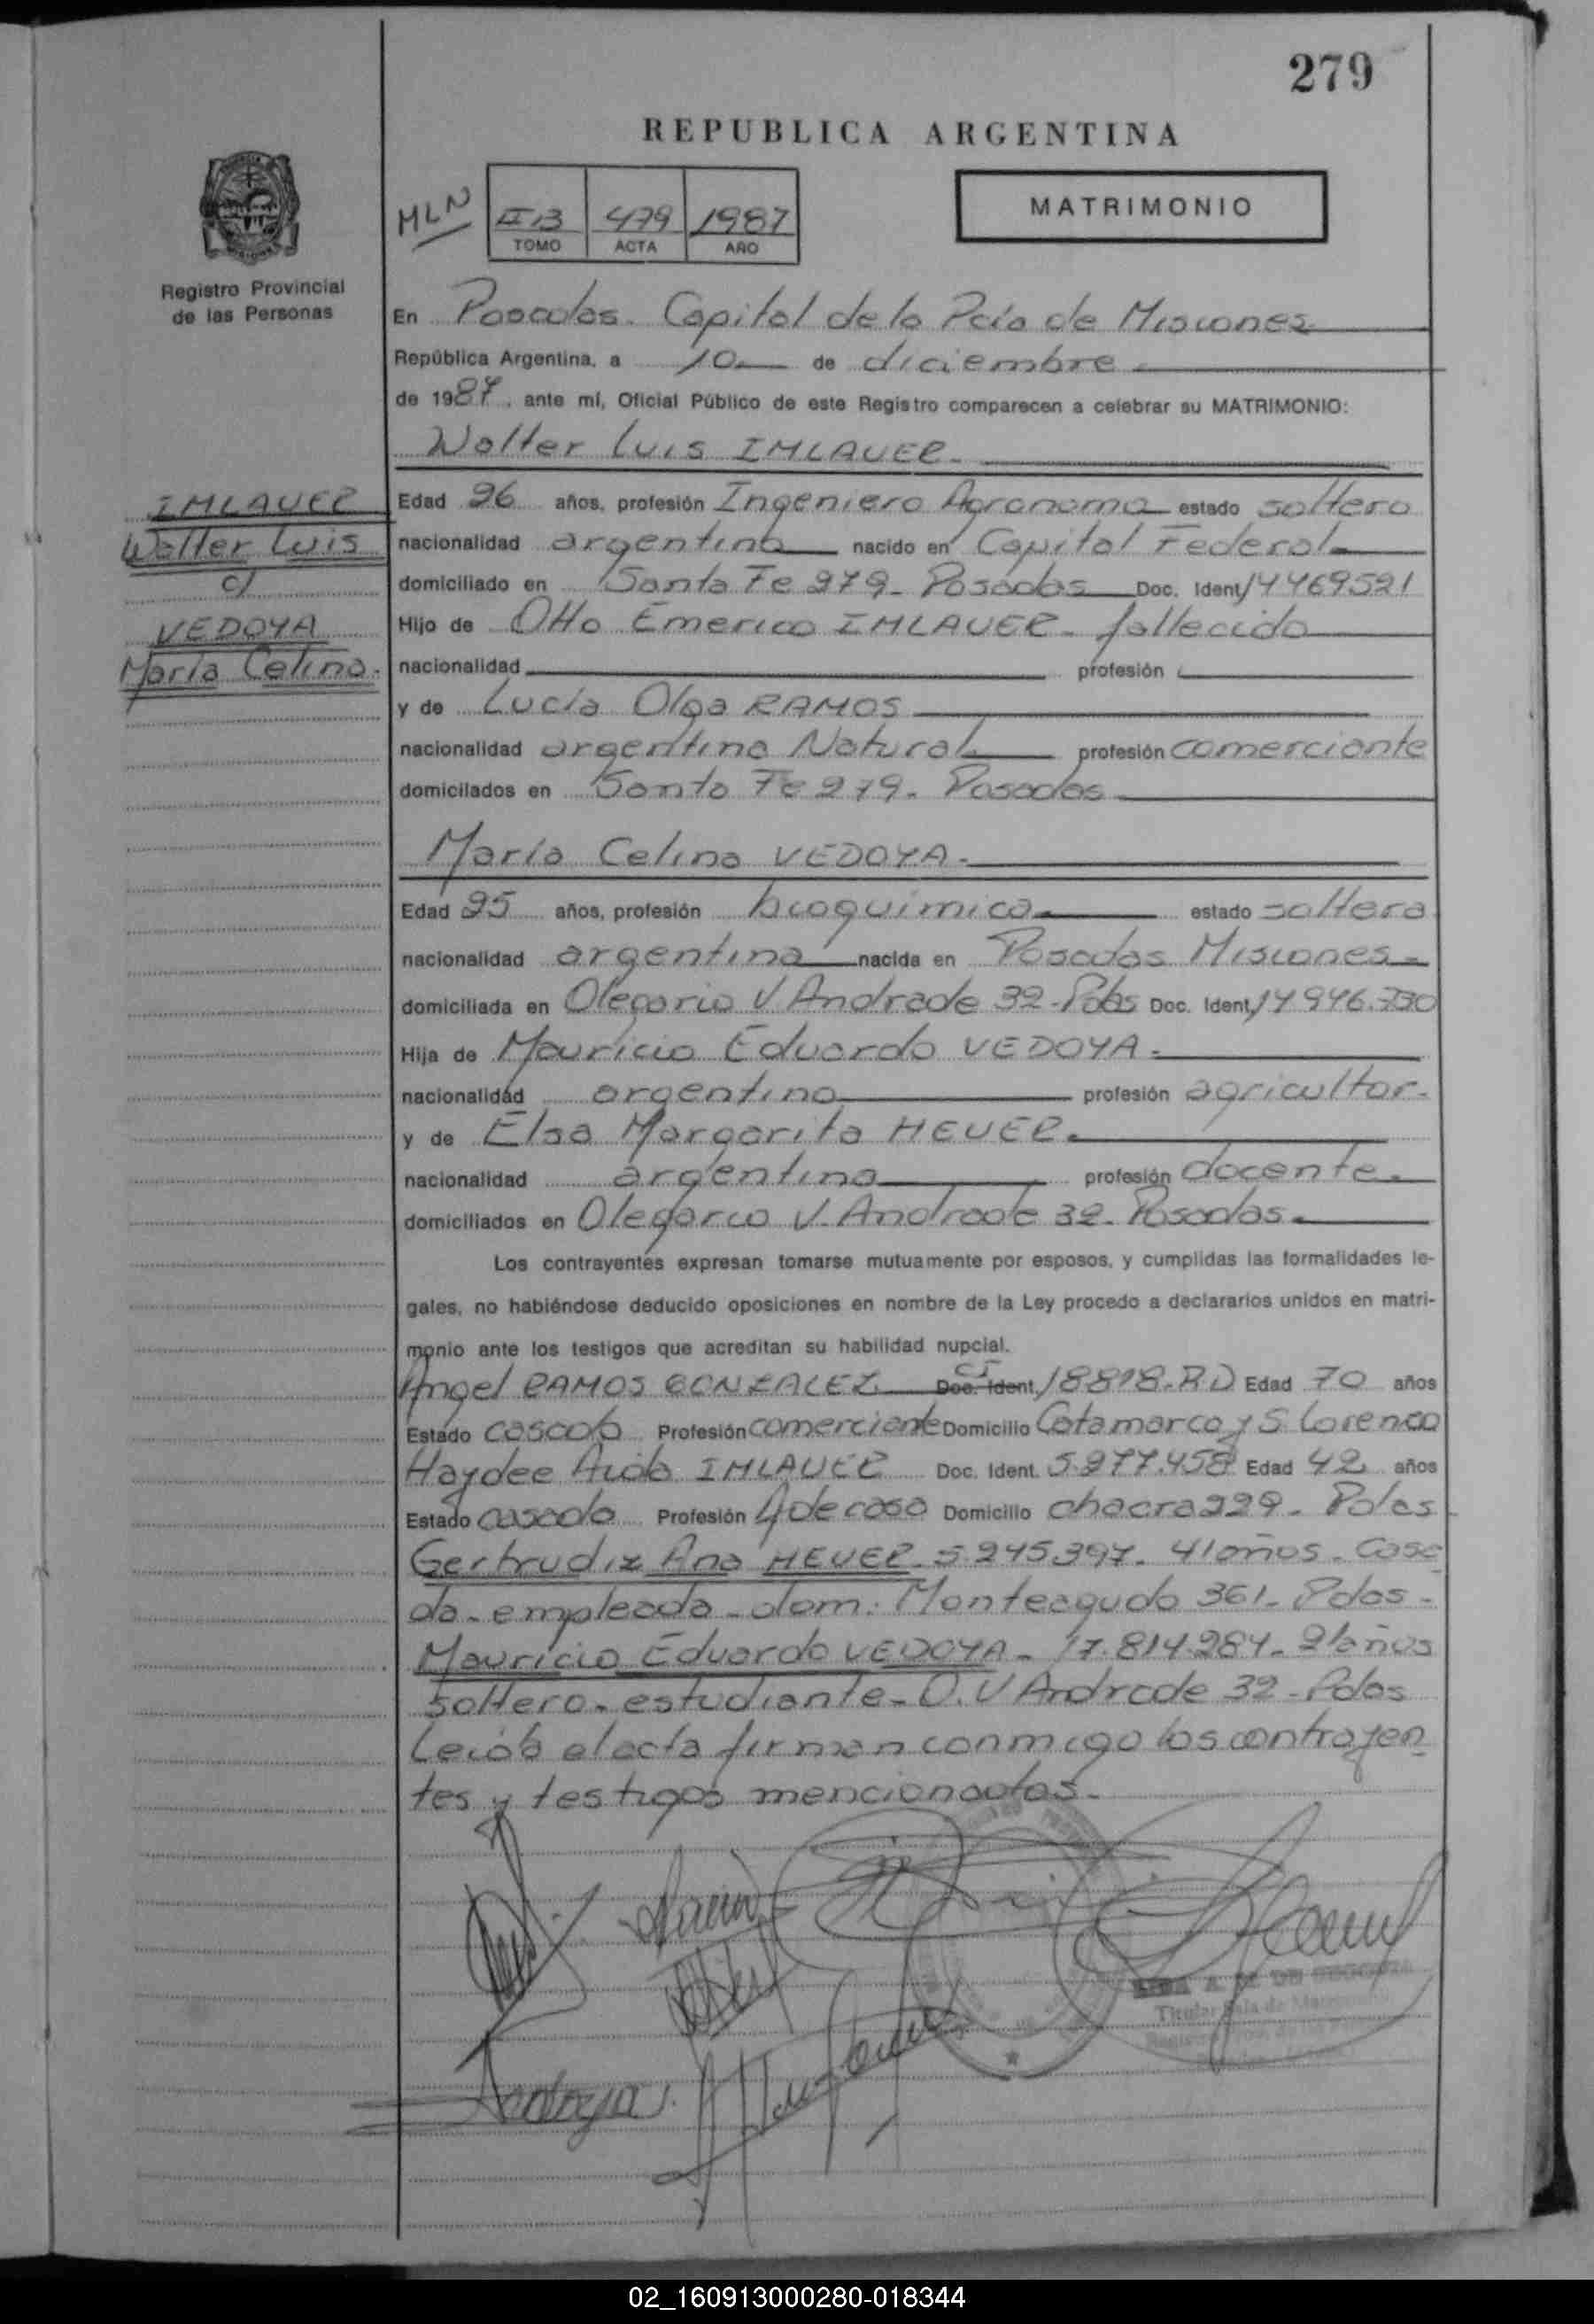 279
REPUBLICA ARGENTINA
MLN
II B 479 1987
TOMO ACTA AÑO
MATRIMONIO
Registro Provincial
de las Personas
En Posadas. Capital de la Pcia de Misiones
República Argentina, a 10 de diciembre
de 1987, ante mí, Oficial Público de este Registro comparecen a celebrar su MATRIMONIO:
Walter Luis IMLAUER
IMLAUER
Walter Luis
c/
VEDOYA
María Celina.
Edad 26 años, profesión Ingeniero Agronomo estado soltero
nacionalidad argentina nacido en Capital Federal
domiciliado en Santa Fe 279 - Posadas Doc. Ident. 14469521
Hijo de Otto Emerico IMLAUER - fallecido
nacionalidad profesión
y de Lucía Olga RAMOS
nacionalidad argentina Natural profesión comerciante
domicilados en Santa Fe 279. Posadas
María Celina VEDOYA.
Edad 25 años, profesión bioquimica estado soltera
nacionalidad argentina nacida en Posadas Misiones
domiciliada en Olegario V. Andrade 32 - Pdas Doc. Ident. 14946.730
Hija de Mauricio Eduardo VEDOYA
nacionalidad argentina profesión agricultor.
y de Elsa Margarita HEUER
nacionalidad argentina profesión docente
domiciliados en Olegario V. Andrade 32 - Posadas
Los contrayentes expresan tomarse mutuamente por esposos, y cumplidas las formalidades le-
gales, no habiéndose deducido oposiciones en nombre de la Ley procedo a declararlos unidos en matri-
monio ante los testigos que acreditan su habilidad nupcial.
Angel RAMOS GONZALEZ CI Doc. Ident. 18818. Edad 70 años
Estado casado Profesión comerciante Domicilio Catamarca y S. Lorenzo
Haydee Aida IMLAUER Doc. Ident. 5.277.458 Edad 42 años
Estado casada Profesión q de casa Domicilio chacra 229 - Pdas
Gertrudiz Ana HEUER - 5.245.397. 41 años. Casa
da - empleada - dom: Monteagudo 361 - Pdas -
Mauricio Eduardo VEDOYA - 17.814.284 - 21 años
soltero - estudiante - O. V Andrade 32 - Pdas
Leída el acta firman conmigo los contrayen
tes y testigos mencionados.
Titular Sala de
02_160913000280-018344